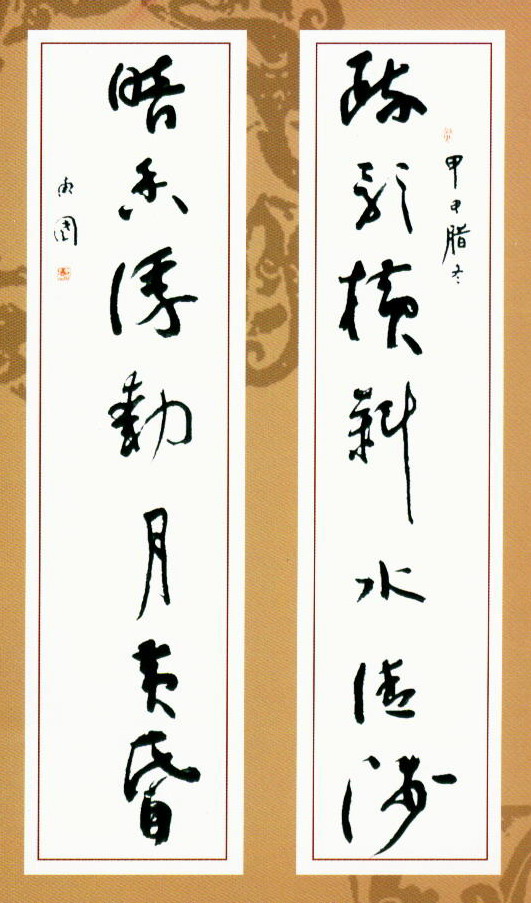 疏影横斜水清浅
甲申腊冬
暗香浮動月黄昏